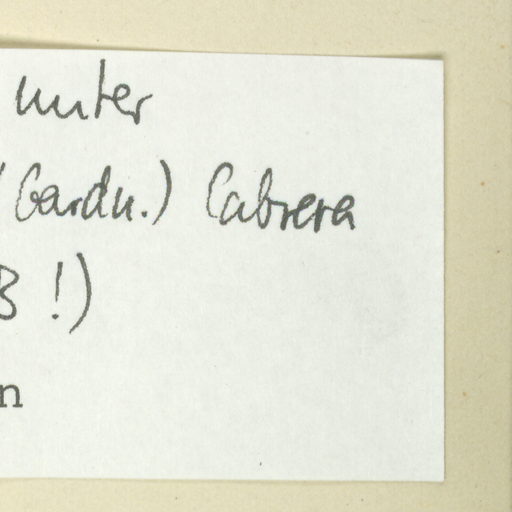 unter
(Gardn.) Cabrera
B !)
n